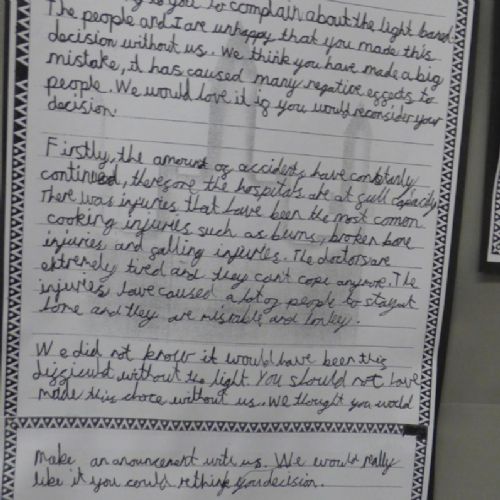 to you to complain about the light band.
The people and I are unhappy that you made this
decision without us. We think you have made a big
mistake, it has caused many negative effects to
people. We would love it if you would reconsider your
decision.
Firstly, the amount of accidents have constantly
continued, therefore the hospitals are at full capacity.
There was injuries that have been the most comon
cooking injuries such as burns, broken bone
injuries and falling injuries. The doctors are
extremely tired and they can't cope anymore. The
injuries have caused a lot of people to stay at
home and they are misrable and lonley.
We did not know it would have been this
difficult without the light. You should not have
made this choice without us. We thought you would
make an anouncement with us. We would really
like it you could rethink you decision.